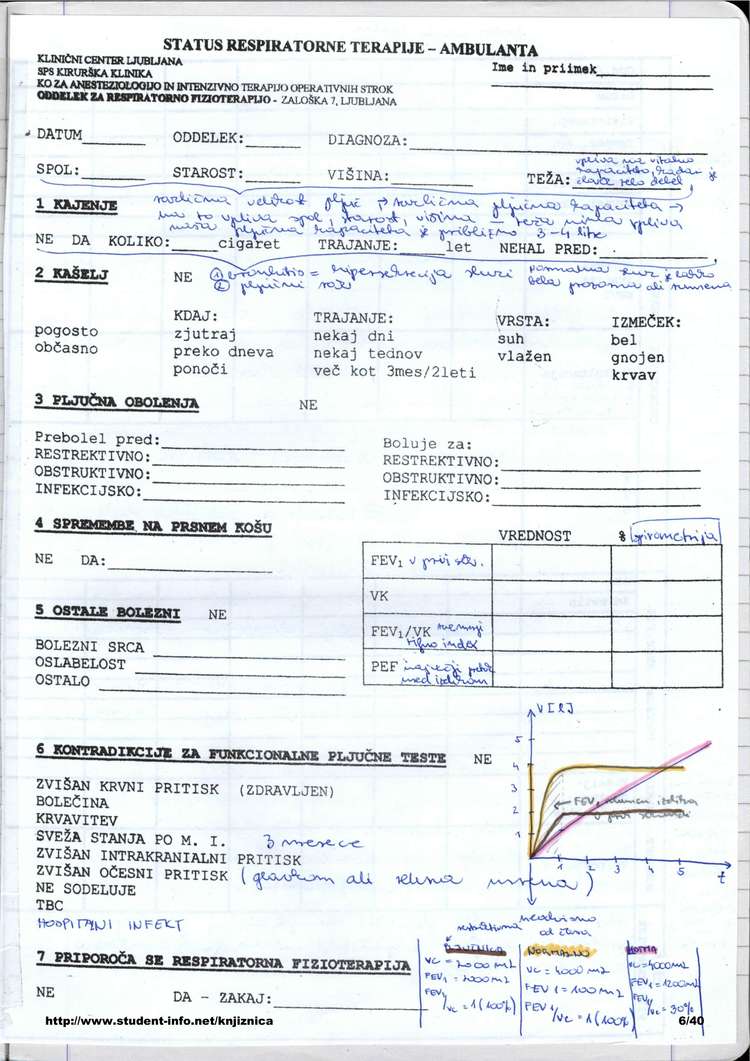 STATUS RESPIRATORNE TERAPIJE – AMBULANTA
KLINIČNI CENTER LJUBLJANA
SPS KIRURŠKA KLINIKA
KO ZA ANESTEZIOLOGIJO IN INTENZIVNO TERAPIJO OPERATIVNIH STROK
ODDELEK ZA RESPIRATORNO FIZIOTERAPIJO - ZALOŠKA 7, LJUBLJANA
Ime in priimek
DATUM ODDELEK: DIAGNOZA:
vpliva na vitalno
kapaciteto, kadar je
človek zelo debel
SPOL: STAROST: VIŠINA: TEŽA:
različna velikost pljuč → različna pljučna kapaciteta →
1 KAJENJE
na to vpliva spol, starost, višina – teža nima vpliva
naša pljučna kapaciteta je približno 3-4 litre
NE DA KOLIKO: cigaret TRAJANJE: let NEHAL PRED:
2 KAŠELJ NE
① bronhitis = hipersekrecija sluzi
② pljučni rak
normalna sluz je lahko
bela prozorna ali rumena
KDAJ: TRAJANJE: VRSTA: IZMEČEK:
pogosto zjutraj nekaj dni suh bel
občasno preko dneva nekaj tednov vlažen gnojen
ponoči več kot 3mes/2leti krvav
3 PLJUČNA OBOLENJA NE
Prebolel pred: Boluje za:
RESTREKTIVNO: RESTREKTIVNO:
OBSTRUKTIVNO: OBSTRUKTIVNO:
INFEKCIJSKO: INFEKCIJSKO:
4 SPREMEMBE NA PRSNEM KOŠU
VREDNOST % spirometrija
NE DA:
FEV1 v prvi sek.
VK
FEV1/VK
index
PEF največji pretok
med izdihom
5 OSTALE BOLEZNI NE
BOLEZNI SRCA
OSLABELOST
OSTALO
V[L]
5
4
3
2
1
FEV1 volumen izdiha
v prvi sekundi
1 2 3 4 5 t
6 KONTRADIKCIJE ZA FUNKCIONALNE PLJUČNE TESTE NE
ZVIŠAN KRVNI PRITISK (ZDRAVLJEN)
BOLEČINA
KRVAVITEV
SVEŽA STANJA PO M. I. 3 mesece
ZVIŠAN INTRAKRANIALNI PRITISK
ZVIŠAN OČESNI PRITISK (glavkom ali zelena mrena)
NE SODELUJE
TBC
HOSPITALNI INFEKT
restriktivna
neodvisno
od časa
NORMALNO
VC = 2000 ml
FEV1 = 2000 ml
FEV1/VC = 1 (100%)
VC = 4000 ml
FEV1 = 100 ml
FEV1/VC = 1 (100%)
VC = 4000 ml
FEV1 = 1200 ml
FEV1/VC = 30%
7 PRIPOROČA SE RESPIRATORNA FIZIOTERAPIJA
NE DA - ZAKAJ:
http://www.student-info.net/knjiznica 6/40